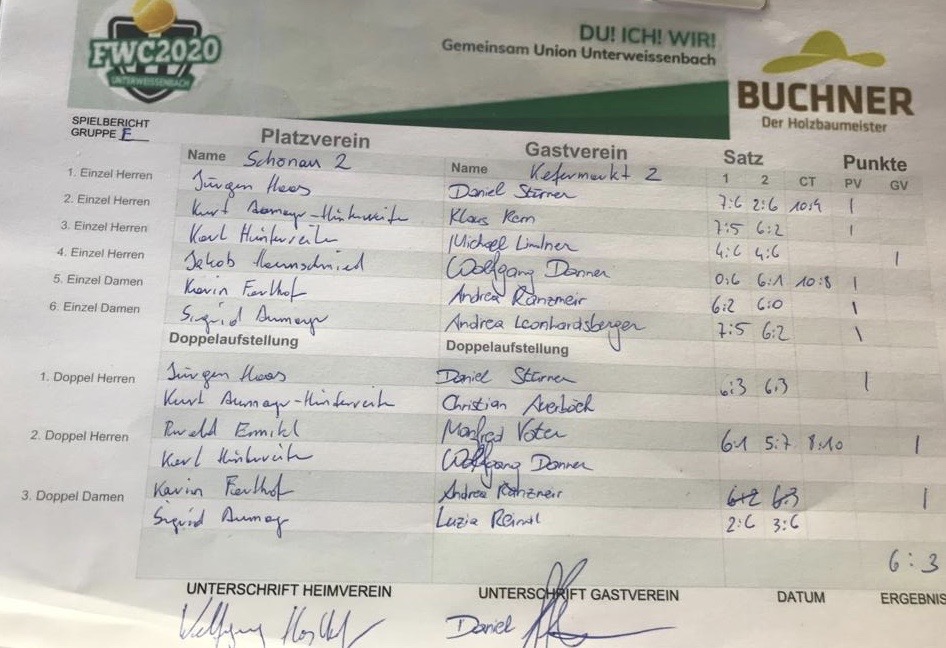 FWC2020
UNTERWEISSENBACH
DU! ICH! WIR!
Gemeinsam Union Unterweissenbach
BUCHNER
Der Holzbaumeister
SPIELBERICHT
GRUPPE F
Platzverein Gastverein Satz Punkte
Name Schönau 2 Name Kefermarkt 2 1 2 CT PV GV
1. Einzel Herren Jürgen Haas Daniel Stürner 7:6 2:6 10:4 1
2. Einzel Herren Kurt Aumayr-Hinterreith Klaus Kern 7:5 6:2 1
3. Einzel Herren Karl Hinterreith Michael Lindner 4:6 4:6 1
4. Einzel Herren Jakob Wolfgang Danner 0:6 6:1 10:8 1
5. Einzel Damen Karin Andrea Ranzmeir 6:2 6:0 1
6. Einzel Damen Sigrid Aumayr Andrea Leonhardsberger 7:5 6:2 1
Doppelaufstellung Doppelaufstellung
1. Doppel Herren Jürgen Haas Daniel Stürner 6:3 6:3 1
Kurt Aumayr-Hinterreith Christian
2. Doppel Herren Manfred Voter 6:1 5:7 8:10 1
Karl Hinterreith Wolfgang Danner
3. Doppel Damen Karin Andrea Ranzmeir 6:2 6:3 1
Sigrid Aumayr Luzia Reindl 2:6 3:6
6:3
UNTERSCHRIFT HEIMVEREIN UNTERSCHRIFT GASTVEREIN DATUM ERGEBNIS
Wolfgang Daniel